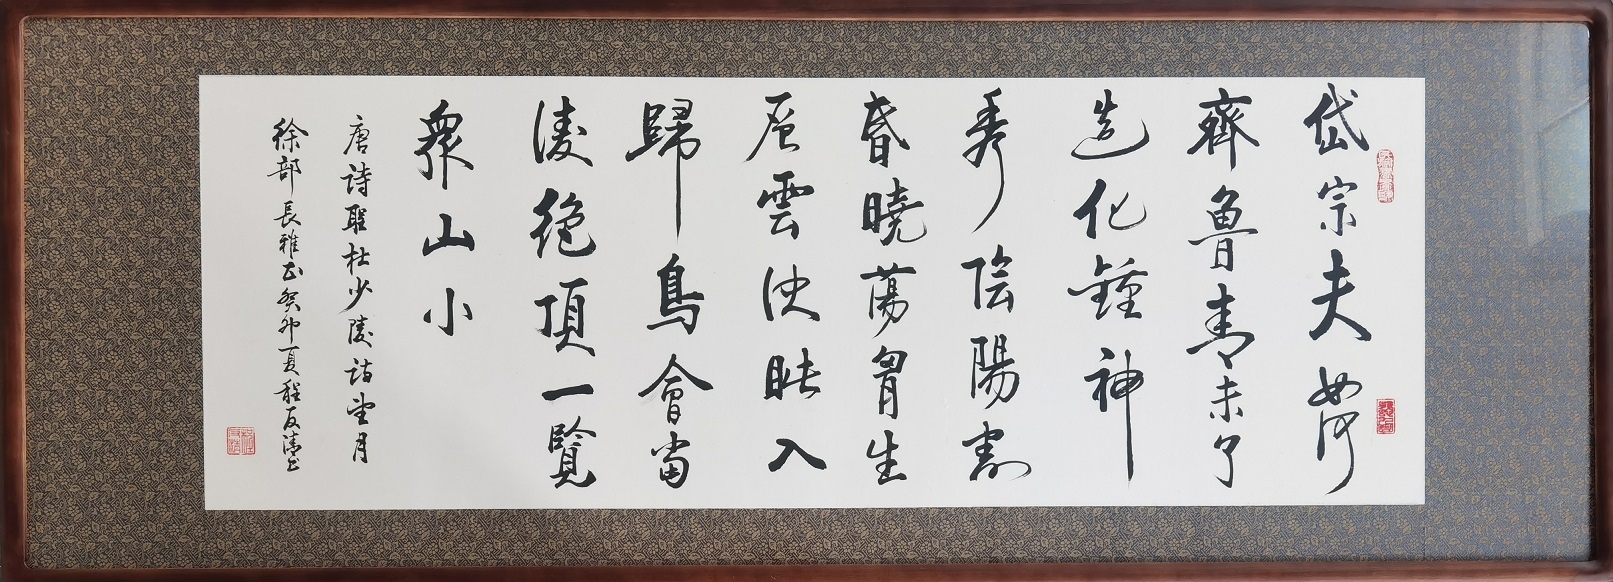 岱宗夫如何
齊魯青未了
造化鍾神
秀陰陽割
昏曉蕩胷生
层雲决眦入
歸鳥會當
凌絶頂一覽
衆山小
唐詩聖杜少陵詩望月
徐部長雅正癸卯夏程友清书